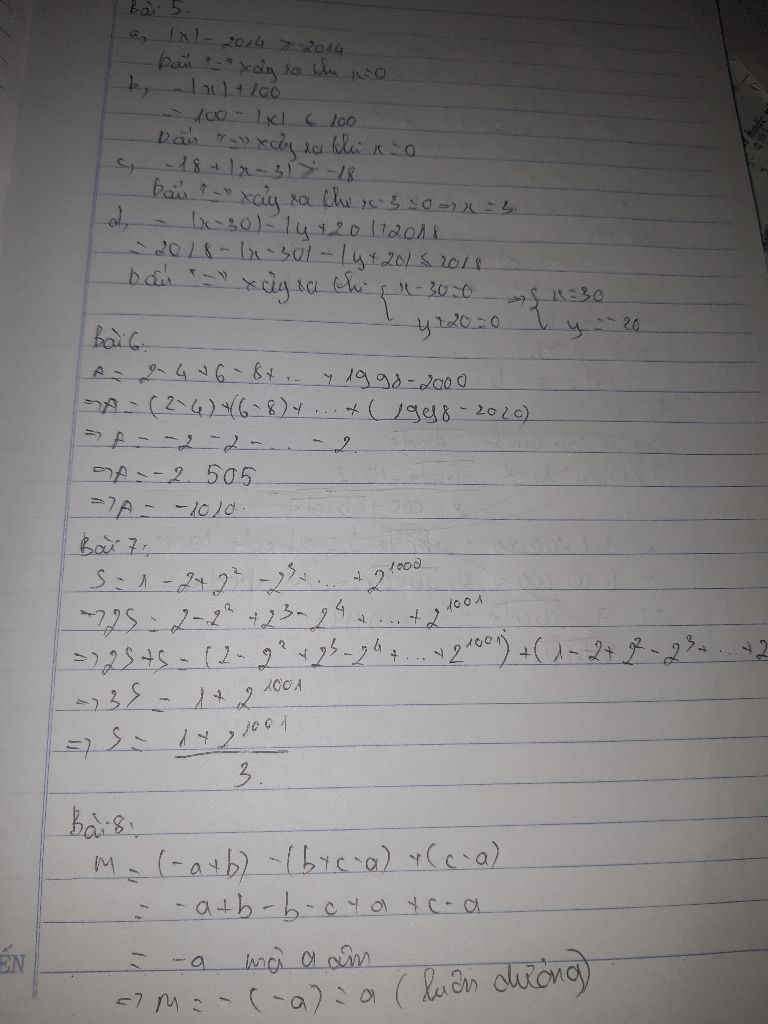 Bài 5.
a, |x| - 2014 ≥ -2014
Dấu "=" xảy ra khi x=0
b, -|x| + 100
= 100 - |x| ≤ 100
Dấu "=" xảy ra khi x=0
c, -18 + |x - 3| ≥ -18
Dấu "=" xảy ra khi x-3=0 => x=3
d, - |x-30| - |y+20|+2018
= 2018 - |x-30| - |y+20| ≤ 2018
Dấu "=" xảy ra khi { x-30=0 => { x=30
y+20=0 y=-20
Bài 6:
A= 2-4+6-8+...+1998-2000
=>A=(2-4)+(6-8)+...+(1998-2020)
=> A = -2 -2 - ... - 2.
=>A=-2. 505
=>A= -1010.
Bài 7:
S = 1 - 2 + 2² - 2³ + ... + 2¹⁰⁰⁰
=>2S = 2 - 2² + 2³ - 2⁴ + ... + 2¹⁰⁰¹
=>2S+S = (2 - 2² + 2³ - 2⁴ + ... + 2¹⁰⁰¹) + (1 - 2 + 2² - 2³ + ... + 2
=>3S = 1 + 2¹⁰⁰¹
=> S = 1 + 2¹⁰⁰¹
3.
Bài 8:
M = (-a+b) - (b+c-a) + (c-a)
= -a+b-b-c+a+c-a
= -a mà a âm
=> M = -(-a) = a (luôn dương)
ẾN